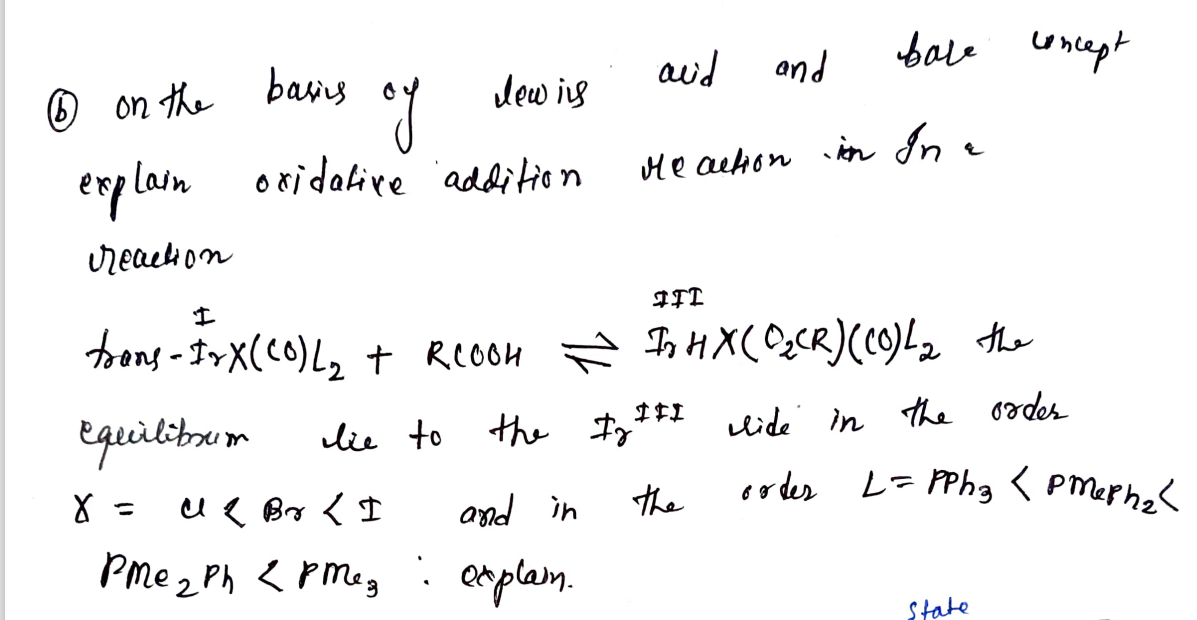 (b) on the basis of lewis acid and base concept
explain oxidative addition reaction in In a
reaction
trans-Ir^I X(CO)L₂ + RCOOH ⇌ Ir^III HX(O₂CR)(CO)L₂ the
equilibrium lie to the Ir^III side in the order
X = Cl < Br < I and in the order L = PPh₃ < PMePh₂ <
PMe₂Ph < PMe₃ : explain.
state